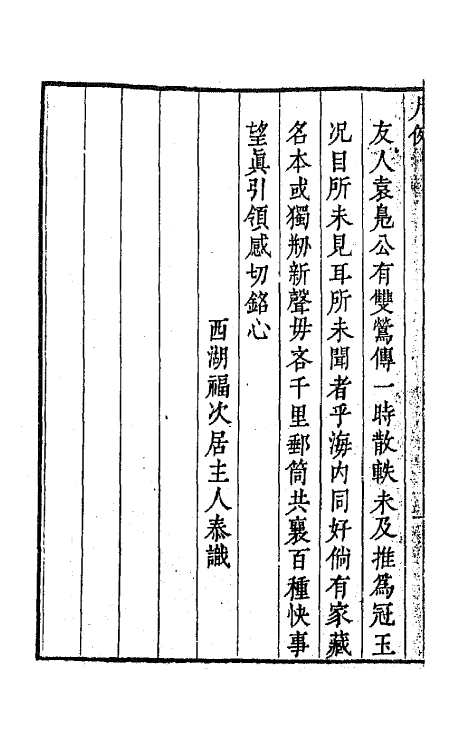 友人袁鳧公有雙鶯傳一時散軼未及推為冠玉
况目所未見耳所未聞者乎海内同好倘有家藏
名本或獨刱新聲毋吝千里郵筒共襄百種快事
望眞引領感切銘心
西湖福次居主人泰識